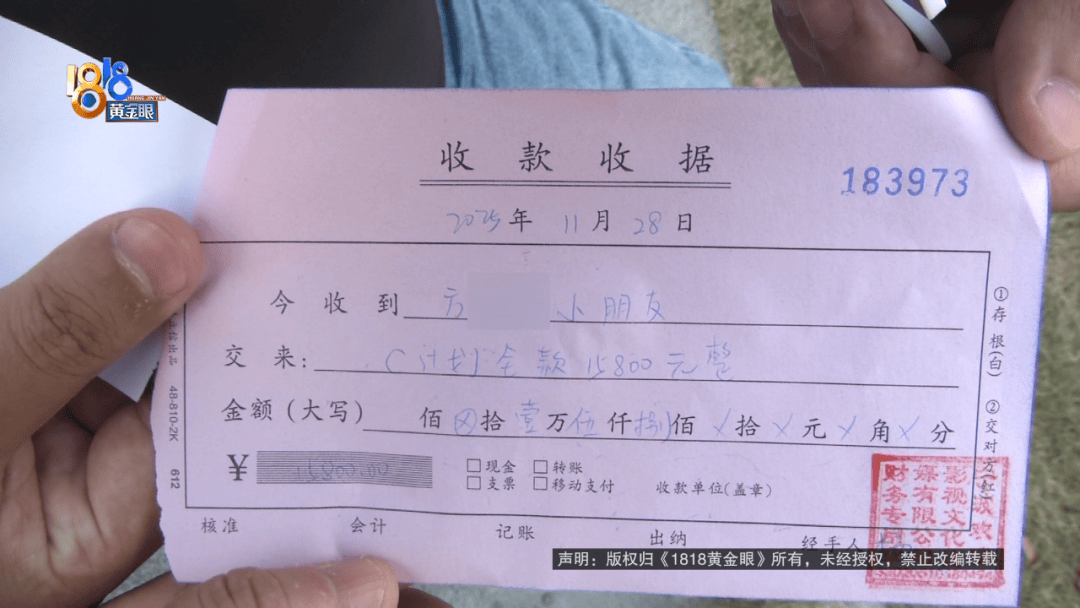 1818
黄金眼
收款收据
183973
2025年11月28日
今收到 方 小朋友
交来: C计划全款15800元整
金额(大写) 佰 ⊗拾 壹万 伍仟 捌佰 ×拾 ×元 ×角 ×分
¥ 15800.00
□现金 □转账
□支票 □移动支付
收款单位(盖章)
核准 会计 记账 出纳 经手人
①存根(白)
②交对方(红)
48-810-2K
612
影视文化
媒有限公
财务专用
声明：版权归《1818黄金眼》所有，未经授权，禁止改编转载